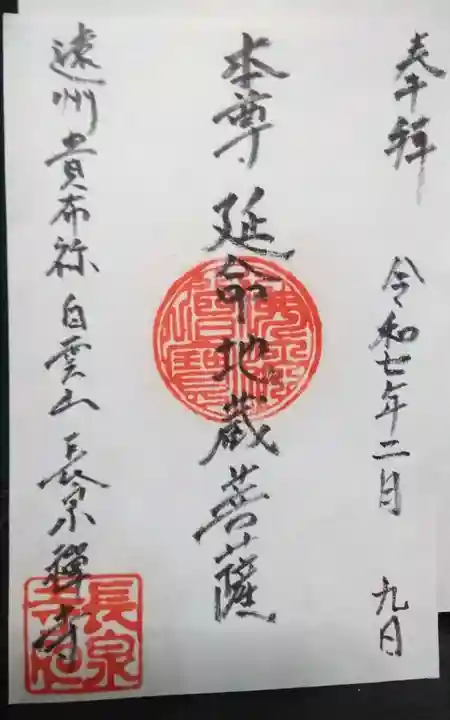 奉拝 令和七年二月 九日
本尊 延命地蔵菩薩
遠州貴布祢 白雲山 長泉禅寺
佛法僧寳
長泉寺印